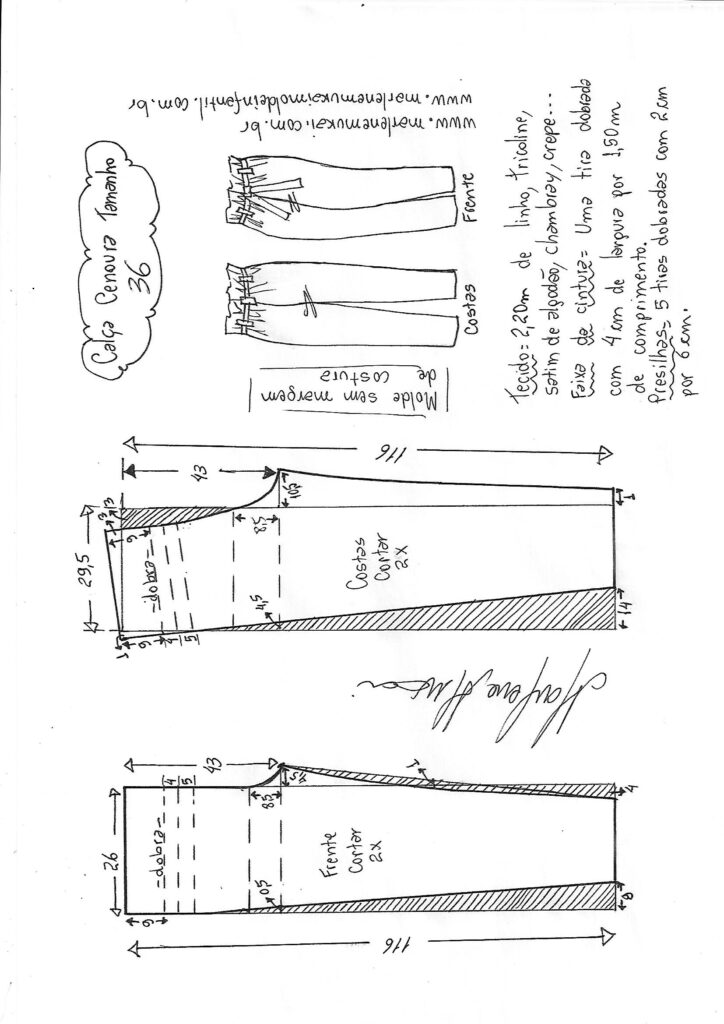 Calça Cenoura Tamanho
36
www.marlenemukai.com.br
www.marlenemukaimoldeinfantil.com.br
Frente
Costas
Molde sem margem
de costura
Tecido= 2,20m de linho, tricoline,
satim de algodão, chambray, crepe...
Faixa da cintura= Uma tira dobrada
com 4cm de largura por 1,50m
de comprimento.
Presilhas= 5 tiras dobradas com 2cm
por 6cm.
116
43
3
3
29,5
6
-dobra-
8,5
10,5
1
Costas
Cortar
2X
4,5
1
6
4
5
14
Marlene Mukai
43
4
5
26
-dobra-
8,5
7,5
1
4
Frente
Cortar
2X
0,5
6
8
116